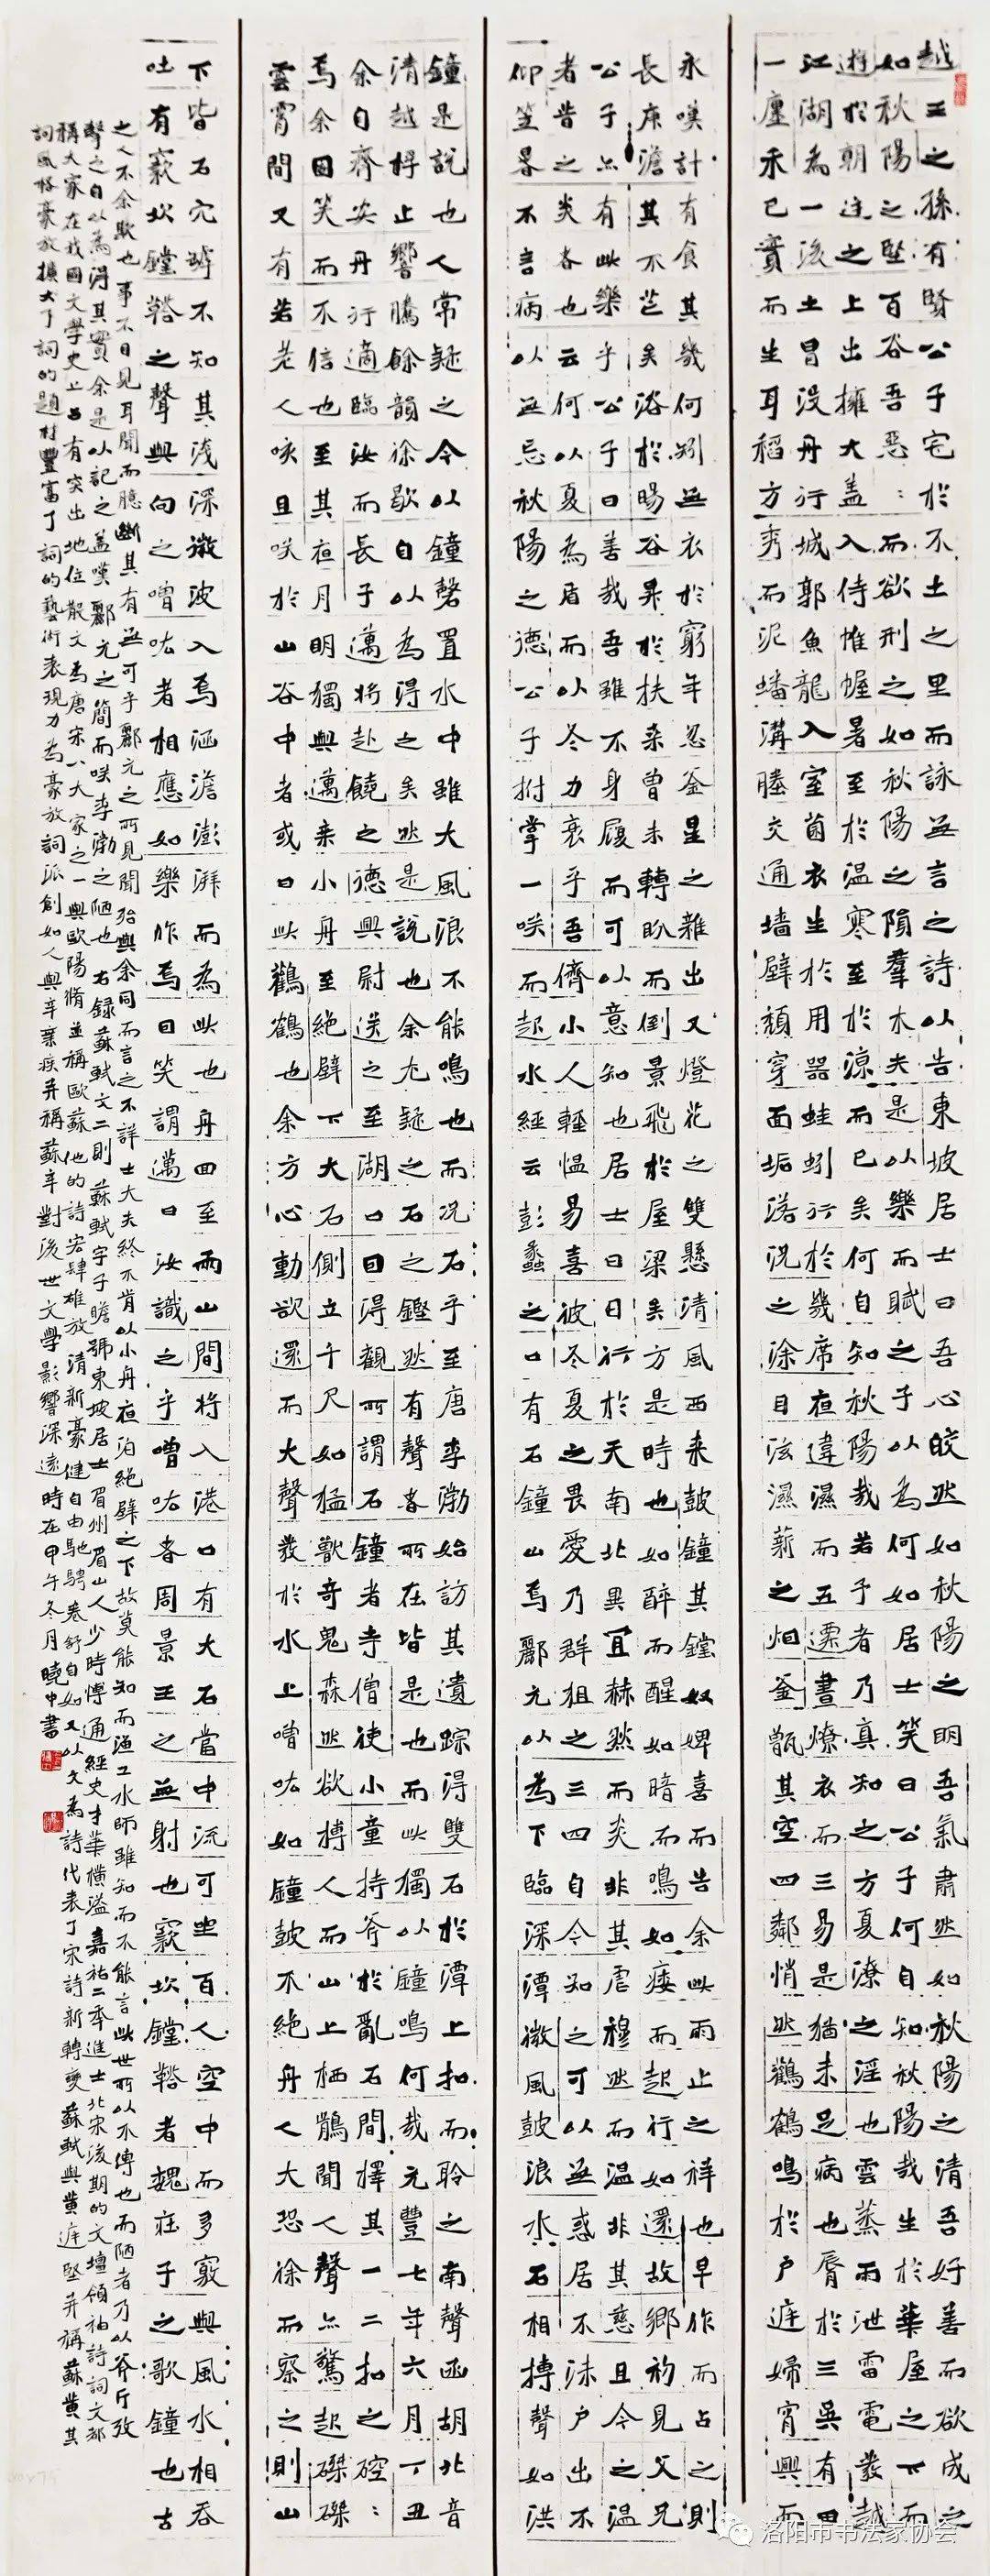 越王之孫有賢公子宅於不土之里而詠無言之詩以告東坡居士曰吾心皎然如秋陽之明吾氣肅然如秋陽之清吾好善而欲成之
如秋陽之堅百谷吾惡：而欲刑之如秋陽之隕羣木夫是以樂而賦之子以為何如居士笑曰公子何自知秋陽哉生於華屋之下而
遊於朝廷之上出擁大蓋入侍帷幄暑至於温寒至於涼而已矣何自知秋陽哉若予者乃真知之方夏潦之淫也雲蒸雨泄雷電發越
江湖為一後土冒沒舟行城郭魚龍入室菌衣生於用器蛙蚓行於幾席夜違濕而五遷晝燎衣而三易是猶未足病也脣於三吳有田
一廛禾已實而生耳稻方秀而泥蟠溝塍交通墻壁頹穿面垢落況之塗目泫濕薪之烟釜甑其空四鄰悄然鸛鶴鳴於戶庭婦宵興而
永嘆計有食其幾何矧無衣於窮年忽釜星之雜出又燈花之雙懸清風西来鼓鐘其鏜奴婢喜而告余此雨止之祥也早作而占之則
長庚澹其不芒矣浴於暘谷昇於扶桒曾未轉盼而倒景飛於屋梁矣方是時也如醉而醒如暗而鳴如痿而起行如還故鄉初見父兄
公子亦有此樂乎公子曰善哉吾雖不身履而可以意知也居士曰日行於天南北異宜赫然而炎非其虐穆然而温非其慈且今之温
者昔之炎者也云何以夏為盾而以冬力衰乎吾儕小人輕愠易喜彼冬夏之畏愛乃群狙之三四自今知之可以無惑居不墐戶出不
仰笠暑不言病以無忘秋陽之德公子拊掌一咲而起水經云彭蠡之口有石鐘山焉酈元以為下臨深潭微風鼓浪水石相搏聲如洪
鐘是說也人常疑之今以鐘磬置水中雖大風浪不能鳴也而況石乎至唐李渤始訪其遺踪得雙石於潭上扣而聆之南聲函胡北音
清越桴止響騰餘韻徐歇自以為得之矣然是說也余尤疑之石之鏗然有聲者所在皆是也而此獨以鐘鳴何哉元豐七年六月丁丑
余自齊安舟行適臨汝而長子邁將赴饒之德興尉送之至湖口因得觀所謂石鐘者寺僧使小童持斧於亂石間擇其一二扣之硿：
焉余固笑而不信也至其夜月明獨與邁乘小舟至絕壁下大石側立千尺如猛獸奇鬼森然欲搏人而山上栖鶻聞人聲亦驚起磔磔
雲霄間又有若老人咳且咲於山谷中者或曰此鸛鶴也余方心動欲還而大聲發於水上噌吰如鐘鼓不絕舟人大恐徐而察之則山
下皆石穴罅不知其淺深微波入焉涵澹澎湃而為此也舟回至兩山間將入港口有大石當中流可坐百人空中而多竅與風水相吞
吐有窾坎鏜鞳之聲與向之噌吰者相應如樂作焉因笑謂邁曰汝識之乎噌吰者周景王之無射也窾坎鏜鞳者魏莊子之歌鐘也古
之人不余欺也事不目見耳聞而臆斷其有無可乎酈元之所見聞殆與余同而言之不詳士大夫終不肯以小舟夜泊絕壁之下故莫能知而漁工水師雖知而不能言此世所以不傳也而陋者乃以斧斤攷
擊之自以為得其實余是以記之蓋嘆酈元之簡而咲李渤之陋也右録蘇軾文二則蘇軾字子瞻號東坡居士眉州眉山人少時博通經史才華橫溢嘉祐二年進士北宋後期的文壇領袖詩詞文都
稱大家在我國文學史上占有突出地位散文為唐宋八大家之一與歐陽脩並稱歐蘇他的詩宏肆雄放清新豪健自由馳騁卷舒自如又以文為詩代表了宋詩新轉變蘇軾與黄庭堅并稱蘇黄其
詞風格豪放擴大了詞的題材豐富了詞的藝術表現力為豪放詞派創始人與辛棄疾并稱蘇辛對後世文學影響深遠時在甲午冬月曉中書
洛阳市书法家协会